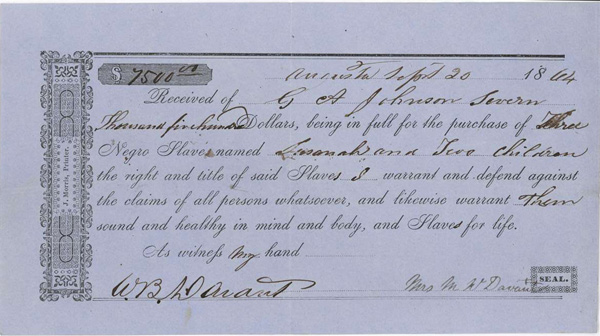 $ 7500 00
Augusta Sept 20 1864
Received of G A Johnson Severn
Thousand five hundred Dollars, being in full for the purchase of Three
Negro Slaves named Susanah and Two Children
the right and title of said Slaves I warrant and defend against
the claims of all persons whatsoever, and likewise warrant Them
sound and healthy in mind and body, and Slaves for life.
As witness My hand
W B
Mrs M W
SEAL.
J. Morris, Printer.